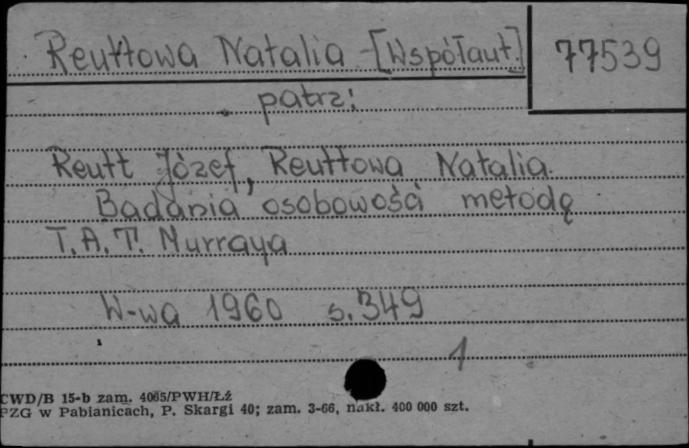 Reuttowa Natalia - [Współaut.] 77539
patrz:
Reutt Józef, Reuttowa Natalia.
Badania osobowości metodą
T.A.T. Murraya
W-wa 1960 s. 349
1
CWD/B 15-b zam. 4065/PWH/Łź
PZG w Pabianicach, P. Skargi 40; zam. 3-66, nakł. 400 000 szt.